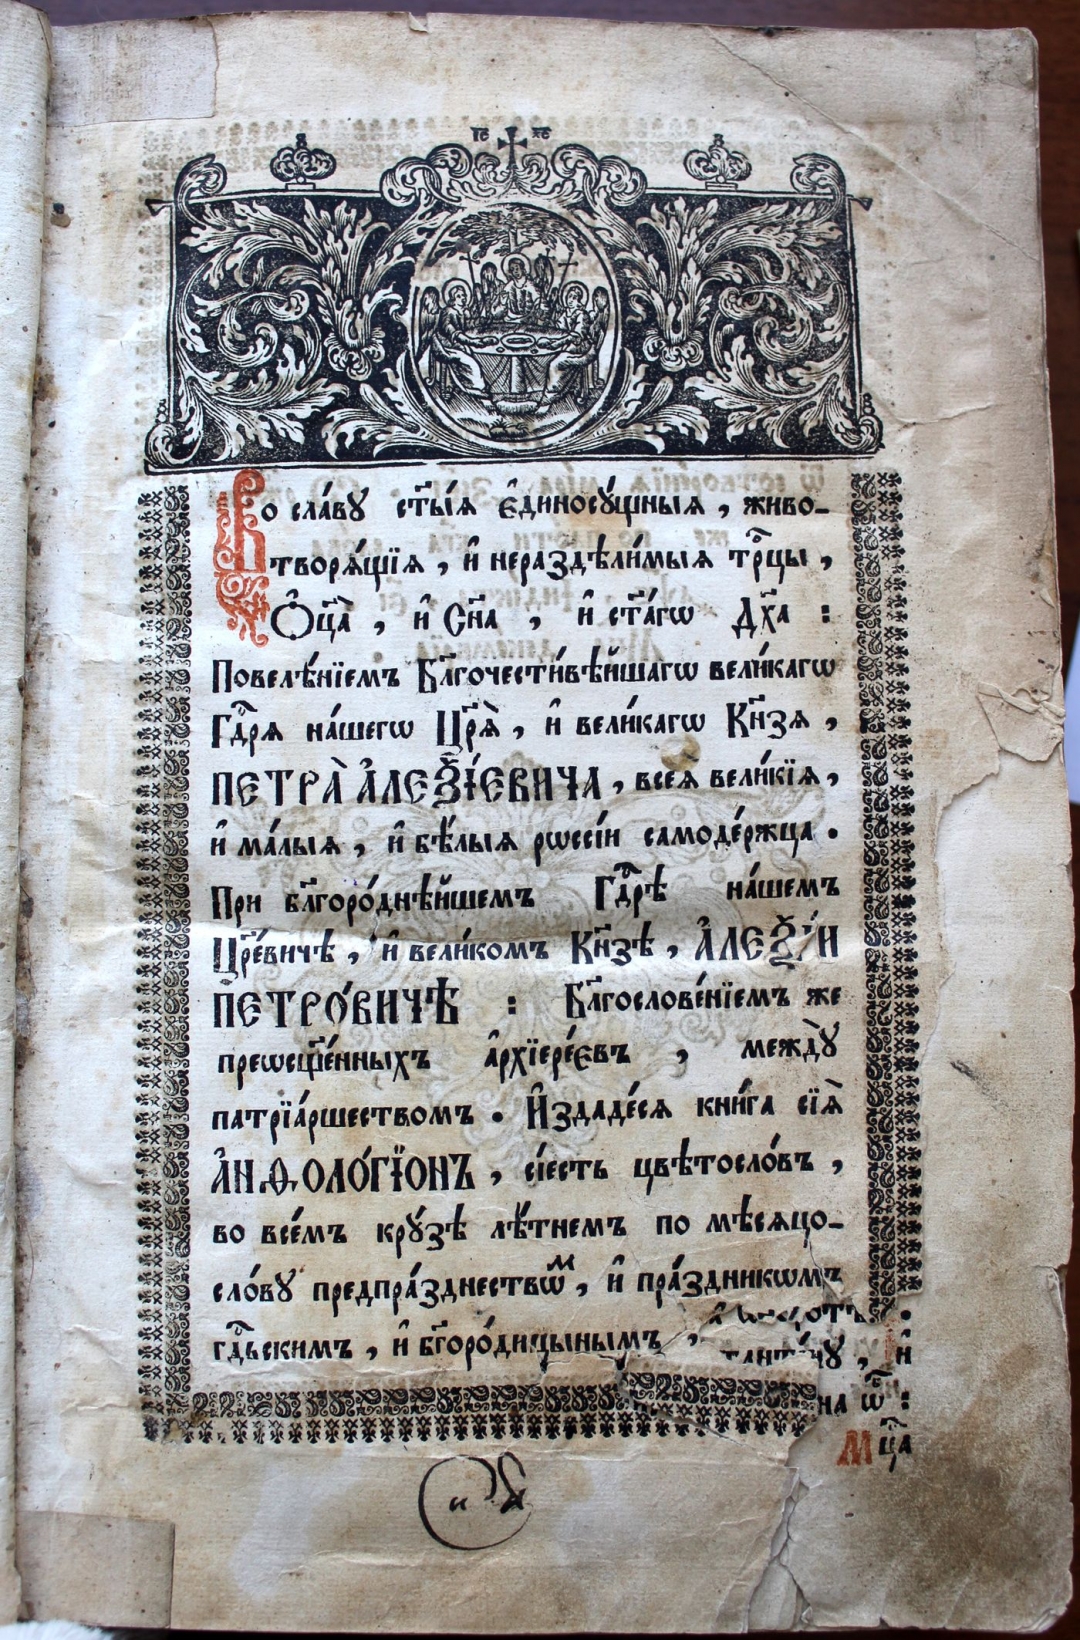 І҃С ХС҃
Во сла́вꙋ ст҃ы́ѧ є҆диносꙋ́щныѧ , живо-
творѧ́щїѧ , и҆ нераздѣли́мыѧ трⷪ҇цы ,
Ѻ҆ц҃а̀ , и҆ Сн҃а , и҆ ст҃а́гѡ Дх҃а :
Повелѣ́нїемъ Бл҃гочести́вѣйшагѡ вели́кагѡ
Гдⷭ҇рѧ на́шегѡ Цр҃ѧ̀ , и҆ вели́кагѡ Кн҃зѧ ,
ПЕТРА̀ А҆ЛЕѮІ́ЕВИЧА , всеѧ вели́кїѧ ,
и҆ ма́лыѧ , и҆ бѣ́лыѧ рѡссі́и самоде́ржца .
При бл҃горо́днѣйшемъ Гдⷭ҇рѣ на́шемъ
Цр҃е́вичѣ , и҆ вели́комъ Кн҃зѣ , А҆ЛЕѮІ́И
ПЕТРО́ВИЧѢ : Бл҃гослове́нїемъ же
преѡсщ҃е́нныхъ а҆рхїере́євъ , междꙋ̀
патрїа́ршествомъ . И҆здаде́сѧ кни́га сїѧ̀
А҆НѲОЛО́ГЇОНЪ , сі́есть цвѣтосло́въ ,
во все́мъ крꙋ́зѣ лѣ́тнемъ по мѣсѧцо-
сло́вꙋ предпра́зднествѡⷨ , и҆ пра́здникѡмъ
гдⷭ҇ьскимъ , и҆ бг҃оро́дицынымъ ,
и҆
на ѿ :
Мц҃а